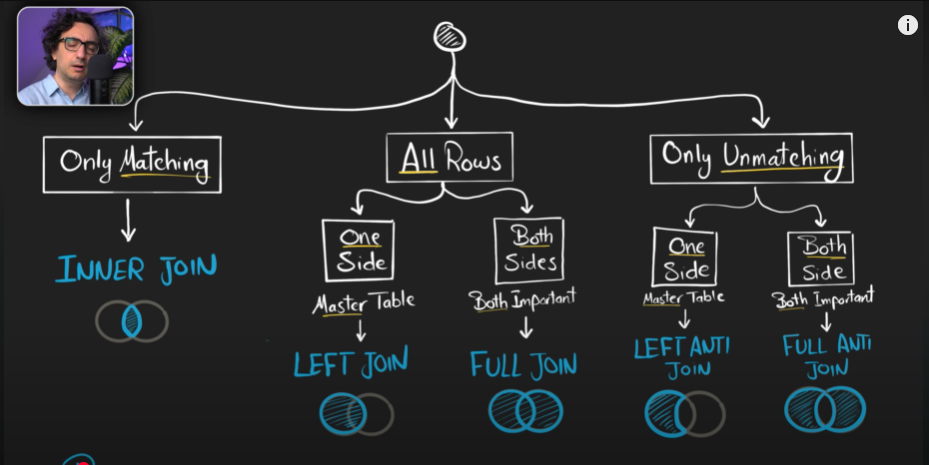 Only Matching
INNER JOIN
All Rows
One
Side
Master Table
LEFT JOIN
Both
Sides
Both Important
FULL JOIN
Only Unmatching
One
Side
Master Table
LEFT ANTI
JOIN
Both
Side
Both Important
FULL ANTI
JOIN
i